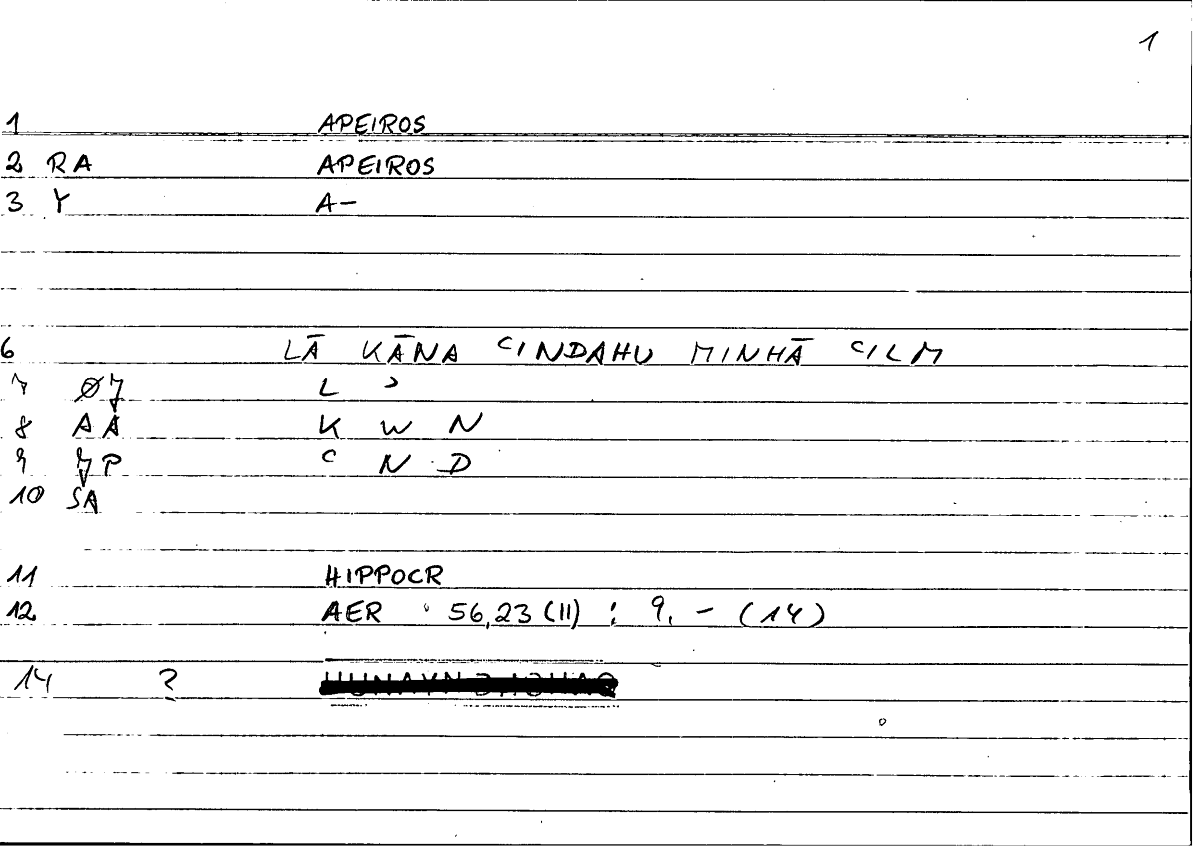 1
1 APEIROS
2 RA APEIROS
3 Y A-
6 LĀ KĀNA ʿINDAHU MINHĀ ʿILM
7 L ʾ
8 AA K W N
9 ʿ N D
10 SA
11 HIPPOCR
12 AER : 56,23 (II) : 9, - (14)
14 ?